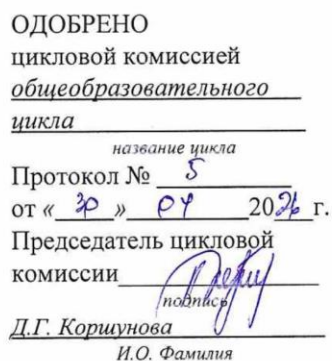 ОДОБРЕНО
цикловой комиссией
общеобразовательного
цикла
название цикла
Протокол № 5
от «30» 04 2026 г.
Председатель цикловой
комиссии
подпись
Д.Г. Коршунова
И.О. Фамилия